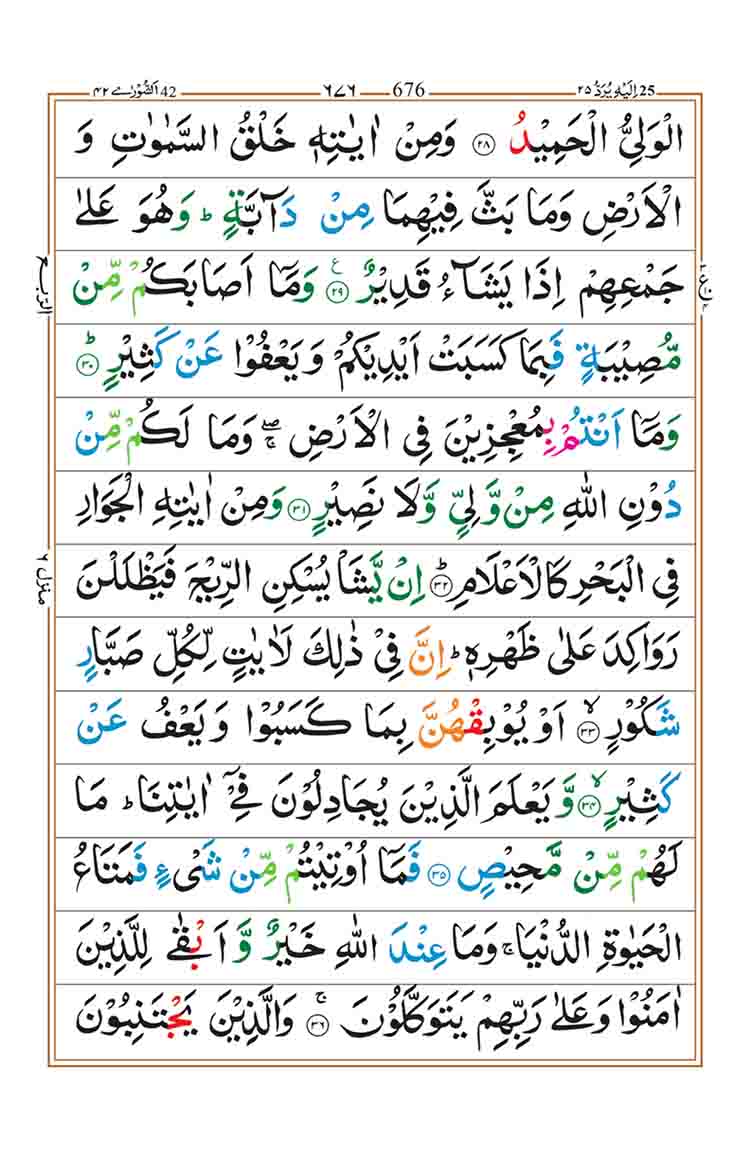 25 اِلَیْهِ یُرَدُّ ۲۵ 676 ٦٧٦ 42 اَلشُّوْرٰے ۴۲
الْوَلِیُّ الْحَمِیْدُ ۲۸ وَمِنْ اٰیٰتِهٖ خَلْقُ السَّمٰوٰتِ وَ
الْاَرْضِ وَمَا بَثَّ فِیْهِمَا مِنْ دَآبَّةٍ ؕ وَهُوَ عَلٰی
جَمْعِهِمْ اِذَا یَشَآءُ قَدِیْرٌ ۲۹ وَمَاۤ اَصَابَكُمْ مِّنْ
مُّصِیْبَةٍ فَبِمَا كَسَبَتْ اَیْدِیْكُمْ وَیَعْفُوْا عَنْ كَثِیْرٍ ؕ ۳۰
وَمَاۤ اَنْتُمْ بِمُعْجِزِیْنَ فِی الْاَرْضِ ۖۚ وَمَا لَكُمْ مِّنْ
دُوْنِ اللّٰهِ مِنْ وَّلِیٍّ وَّلَا نَصِیْرٍ ۳۱ وَمِنْ اٰیٰتِهِ الْجَوَارِ
فِی الْبَحْرِ كَالْاَعْلَامِ ؕ ۳۲ اِنْ یَّشَاْ یُسْكِنِ الرِّیْحَ فَیَظْلَلْنَ
رَوَاكِدَ عَلٰی ظَهْرِهٖ ؕ اِنَّ فِیْ ذٰلِكَ لَاٰیٰتٍ لِّكُلِّ صَبَّارٍ
شَكُوْرٍ ۙ ۳۳ اَوْ یُوْبِقْهُنَّ بِمَا كَسَبُوْا وَیَعْفُ عَنْ
كَثِیْرٍ ۙ ۳۴ وَّیَعْلَمَ الَّذِیْنَ یُجَادِلُوْنَ فِیْۤ اٰیٰتِنَا ؕ مَا
لَهُمْ مِّنْ مَّحِیْصٍ ۳۵ فَمَاۤ اُوْتِیْتُمْ مِّنْ شَیْءٍ فَمَتَاعُ
الْحَیٰوةِ الدُّنْیَا ۚ وَمَا عِنْدَ اللّٰهِ خَیْرٌ وَّاَبْقٰی لِلَّذِیْنَ
اٰمَنُوْا وَعَلٰی رَبِّهِمْ یَتَوَكَّلُوْنَ ۚ ۳۶ وَالَّذِیْنَ یَجْتَنِبُوْنَ
الرّبع
منزل ۶